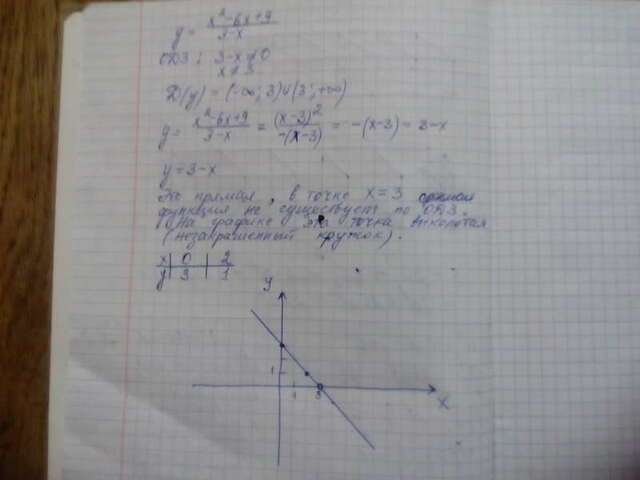 y = (x²-6x+9)/(3-x)
ОДЗ: 3-x≠0
x≠3
D(y) = (-∞; 3)∪(3; +∞)
y = (x²-6x+9)/(3-x) = (x-3)²/(-(x-3)) = -(x-3) = 3-x
y = 3-x
Это прямая, в точке x=3
функция не существует по ОДЗ.
На графике эта точка выколотая
(незакрашенный кружок).
x | 0 | 2
y | 3 | 1
y
1
1 3
x